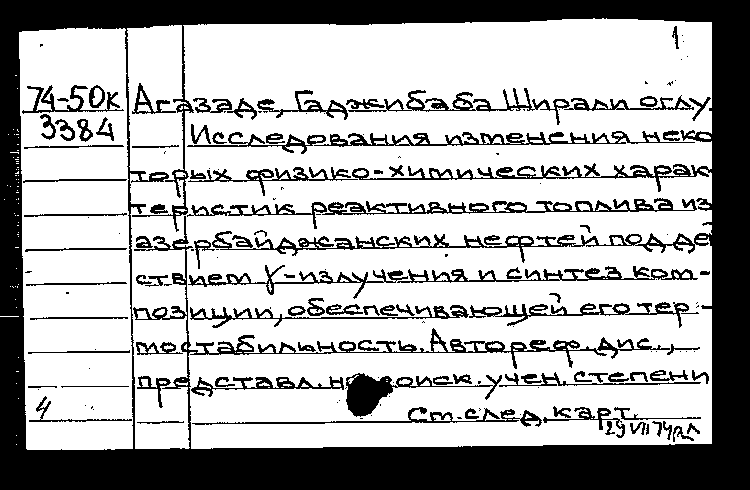 1
74-50к Агазаде, Гаджибаба Ширали оглу.
3384 Исследования изменения неко
торых физико-химических харак-
теристик реактивного топлива из
азербайджанских нефтей под дей
ствием γ-излучения и синтез ком-
позиции, обеспечивающей его тер-
мостабильность. Автореф. дис.,
представл. на соиск. учен. степени
4 См. след. карт.
29 VII 74